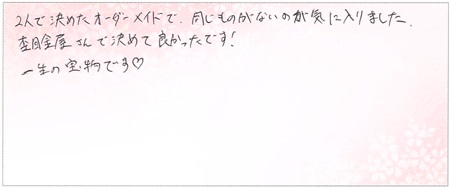 2人で決めたオーダーメイドで、同じものがないのが気に入りました。
杢目金屋さんで決めて良かったです!
一生の宝物です♡